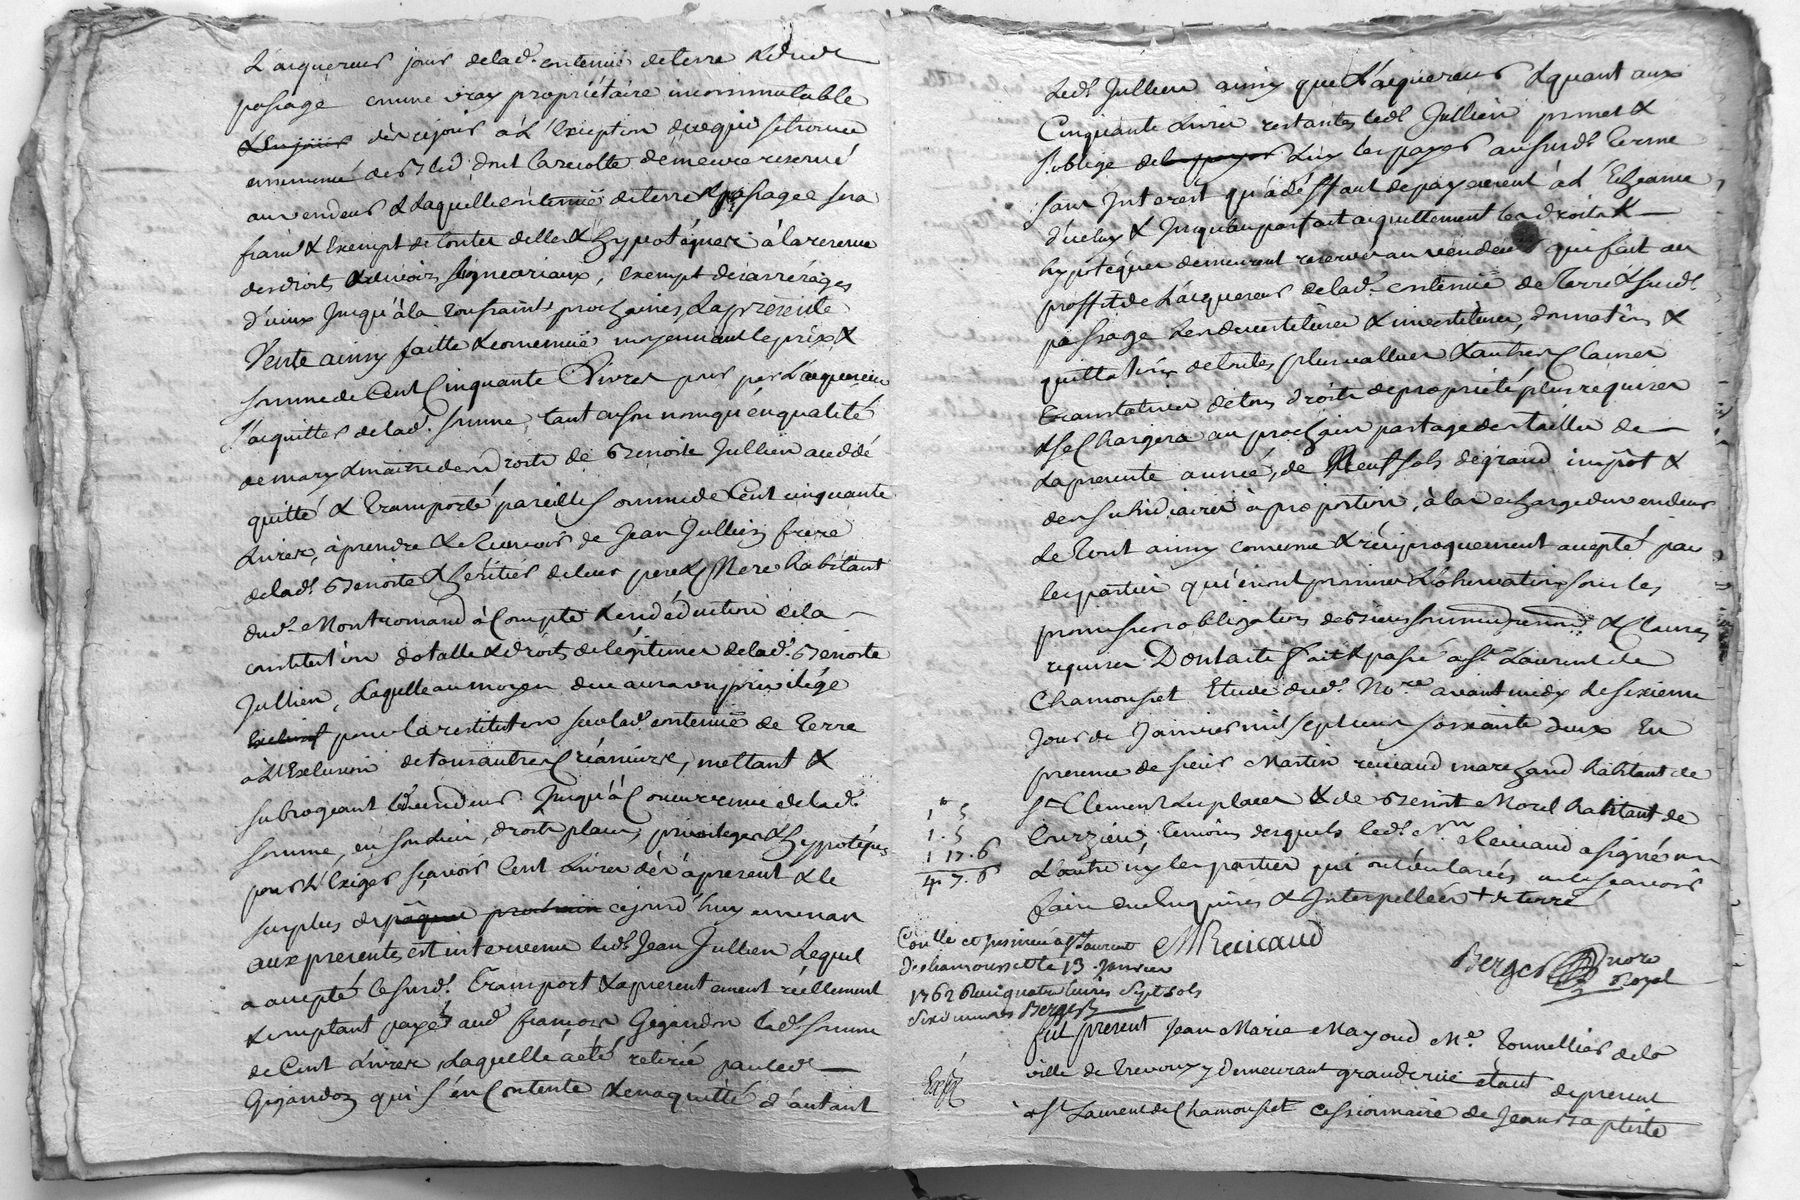 L'acquereur jouir delad. contenüe de terre & dud.
passage comme vray propriétaire incommutable
dès cejour à L'Exception dece qui se trouve
ensemencé de bled dont la recolte demeure reservé
au vendeur & Laquelle contenüe de terre & passage sera
franc & Exempt de toutes dettes & hypotéques à la reserve
des droits & devoirs seigneuriaux, Exempt d'arrérages
d'iceux Jusqu'à la Toussaint prochaines, La présente
Vente ainsy faitte & convenüe moyennant le prix &
somme de Cent Cinquante Livres pour par L'acquereur
s'acquitter de lad. somme, tant en son nom qu'en qualité
de mary & maitre des droits de Benoite Jullien a cedé
quitté & Transporté pareille somme de Cent cinquante
Livres, à prendre & recevoir de Jean Jullien frere
de lad. Benoite & héritier de leur pere & Mere habitant
dud. Montromand à Compte & en déduction de la
constitution dotalle & droits de légitimes de lad. Benoite
Jullien, Laquelle au moyen dece aura un privilége
Exclusif pour la restitution sur lad. contenüe de Terre
à L'Exclusion de tous autres Créanciers, mettant &
subrogeant led. vendeur Jusqu'à Concurrence de lad.
somme, en son lieu, droits, place, privileges & hypotéques
pour L'Exiger sçavoir Cent Livres dès à present & le
surplus de pâques prochain cejourd'huy en un an
aux presentes est intervenu led. Jean Jullien Lequel
a accepté Le surd. Transport & a presentement réellement
& comptant payé aud. françois Gigandon lad. somme
de Cent Livres, Laquelle a été retirée par led.
Gigandon qui s'en Contente & en a quitté d'autant
Led. Jullien ainsy que L'acquereur & quant aux
Cinquante Livres restantes led. Jullien promet &
s'oblige de les payer au surd. terme
sans Interest qu'à déffaut de payement à L'Echeance
d'icelux & Jusqu'au parfait acquittement les droits &
hypotéques demeurent reservés au vendeur qui fait au
proffit de L'acquereur de lad. contenüe de Terre & surd.
passage les devestitures & investitures, donnation &
quittation de toutes plus vallues & autres Clauses
translatives de tous droits de propriété plus requises
& se Chargera au prochain partage des tailles de
La presente année, de Neuf sols de grand impôt &
des subsidiaires à proportion, à la décharge du vendeur
Le Tout ainsy convenu & réciproquement accepté par
les parties qui en ont promis L'observation sous les
promissions obligations de biens soummis renon.ns & Clauses
requises Dont acte fait & passé à St. Laurent de
Chamousset Etude dud. No.re avant midy le sixieme
Jour de Janvier mil sept cent soixante deux En
presence de sieur Martin reicaud marchand habitant de
St. Clement Les places & de Benoit Morel habitant de
Courzieu, temoins desquels led. Sr. Reicaud a signé non
L'autre ny les parties qui ont déclarées ne le sçavoir
faire de ce Enquises & Interpellées
MReicaud
Berger nore
Royal
1 5
1 . 5
1 17 . 6
4 . 7 . 6
Con.lle et Insinué a St Laurent
De chamousset le 13 Janvier
1762 Reçu quatre Livres sept sols
six deniers Berger
fut present Jean Marie Mayoud Me. Tonnellier de la
ville de Trevoux y Demeurant grande rue étant de present
Expé
à St. Laurent de Chamousset cessionnaire de Jean Baptiste